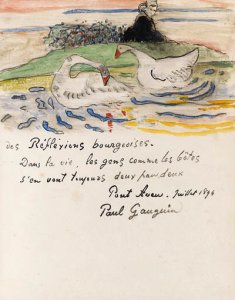 des Réfléxions bourgeoises.
Dans la vie, les gens comme les bêtes
s'en vont toujours deux par deux
Pont Aven, Juillet 1894
Paul Gauguin